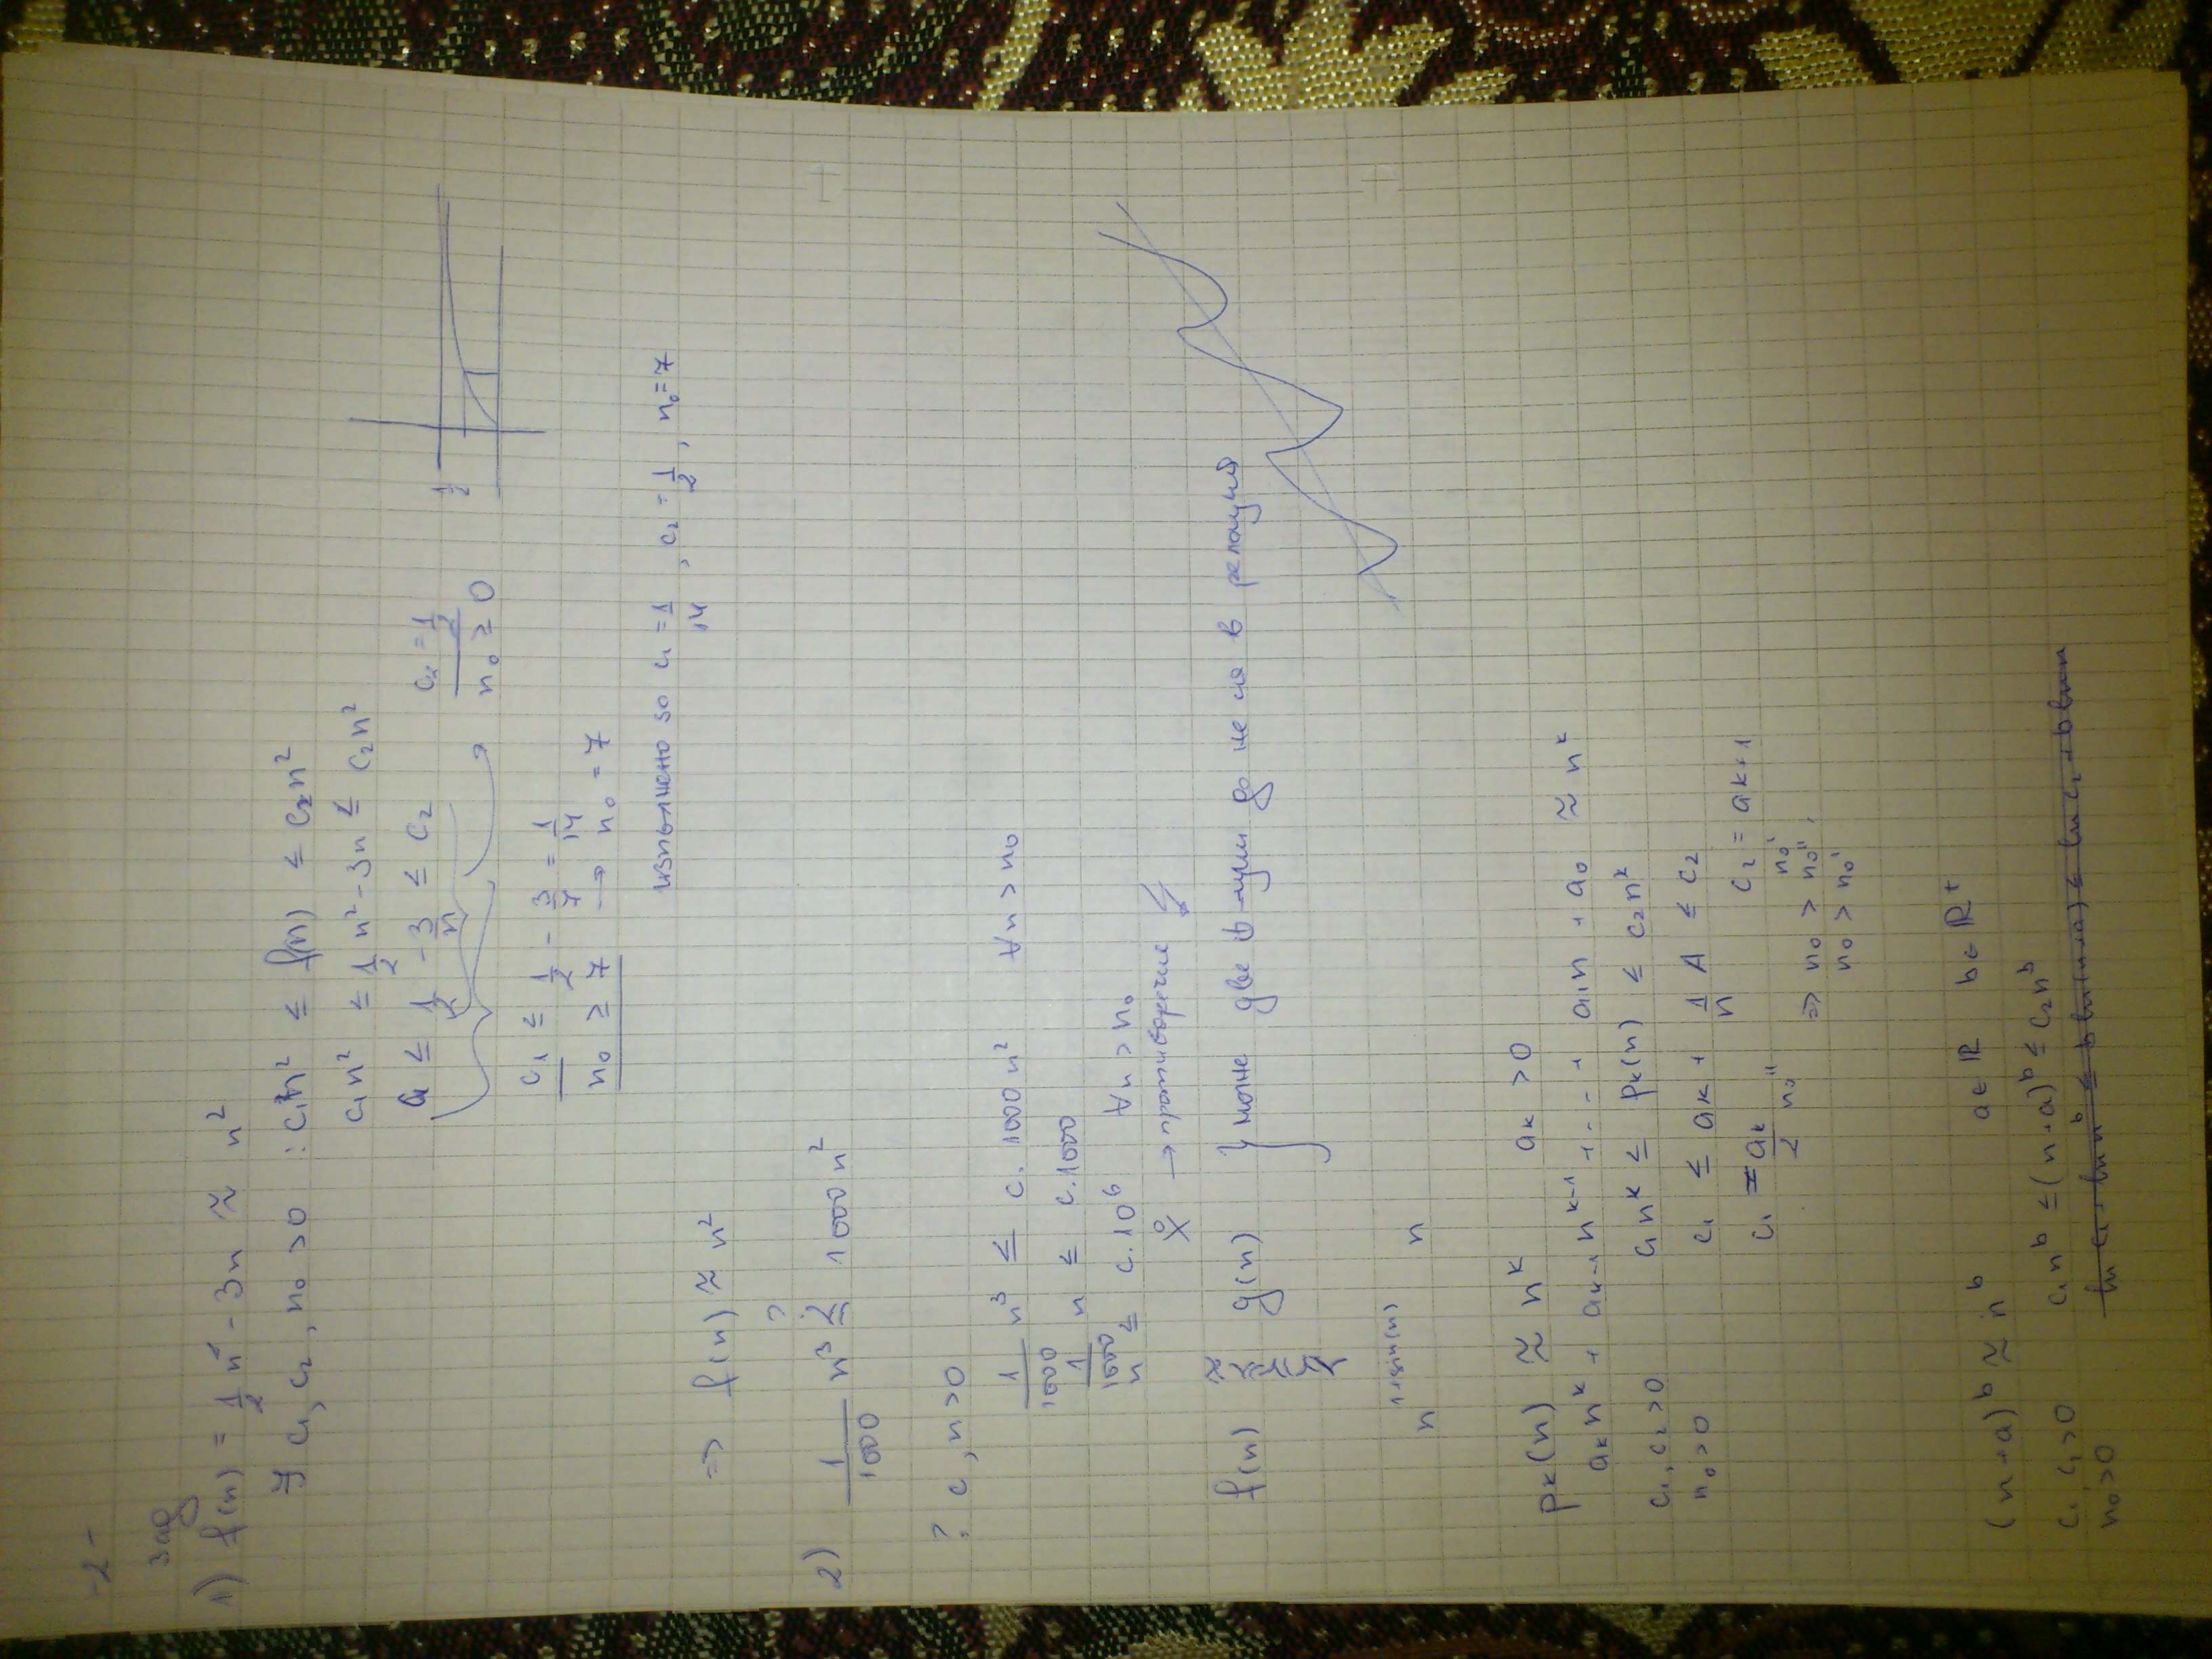 -2-
зад
1) f(n) = 1/2 n² - 3n ≍ n²
∃ c₁, c₂, n₀ > 0 : c₁n² ≤ f(n) ≤ c₂n²
c₁n² ≤ 1/2 n² - 3n ≤ c₂n²
c₁ ≤ 1/2 - 3/n ≤ c₂
c₂ = 1/2
n₀ ≥ 0
1/2
c₁ ≤ 1/2 - 3/7 = 1/14
n₀ ≥ 7 → n₀ = 7
изпълнено за c₁ = 1/14, c₂ = 1/2, n₀ = 7
⇒ f(n) ≍ n²
2) 1/1000 n³ ≤ 1000n²
?
? c, n > 0
1/1000 n³ ≤ c.1000n² ∀n > n₀
1/1000 n ≤ c.1000
n ≤ c.10⁶ ∀n > n₀
→ противоречие
f(n) ≍ g(n) } може две ф-ции да не са в релация
n^(1+sin(n)) n
Pₖ(n) ≍ nᵏ aₖ > 0
aₖnᵏ + aₖ₋₁nᵏ⁻¹ + ... + a₁n + a₀ ≍ nᵏ
c₁, c₂ > 0
n₀ > 0
c₁nᵏ ≤ Pₖ(n) ≤ c₂nᵏ
c₁ ≤ aₖ + 1/n A ≤ c₂
c₁ = aₖ/2 c₂ = aₖ+1
n₀'' n₀'
⇒ n₀ > n₀'',
n₀ > n₀'
(n+a)ᵇ ≍ nᵇ a∈ℝ b∈ℝ⁺
c₁, c₂ > 0
n₀ > 0
c₁nᵇ ≤ (n+a)ᵇ ≤ c₂nᵇ